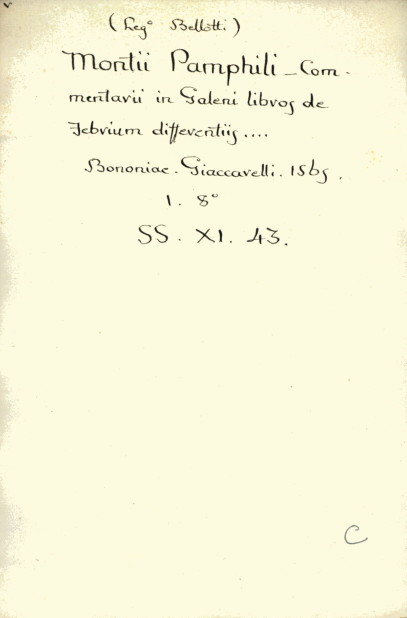 (Leg° Bellotti)
Montii Pamphili - Com-
mentarii in Galeni libros de
Febrium differentiis ....
Bononiae. Giaccarelli. 1565.
1. 8°
SS. XI. 43.
C